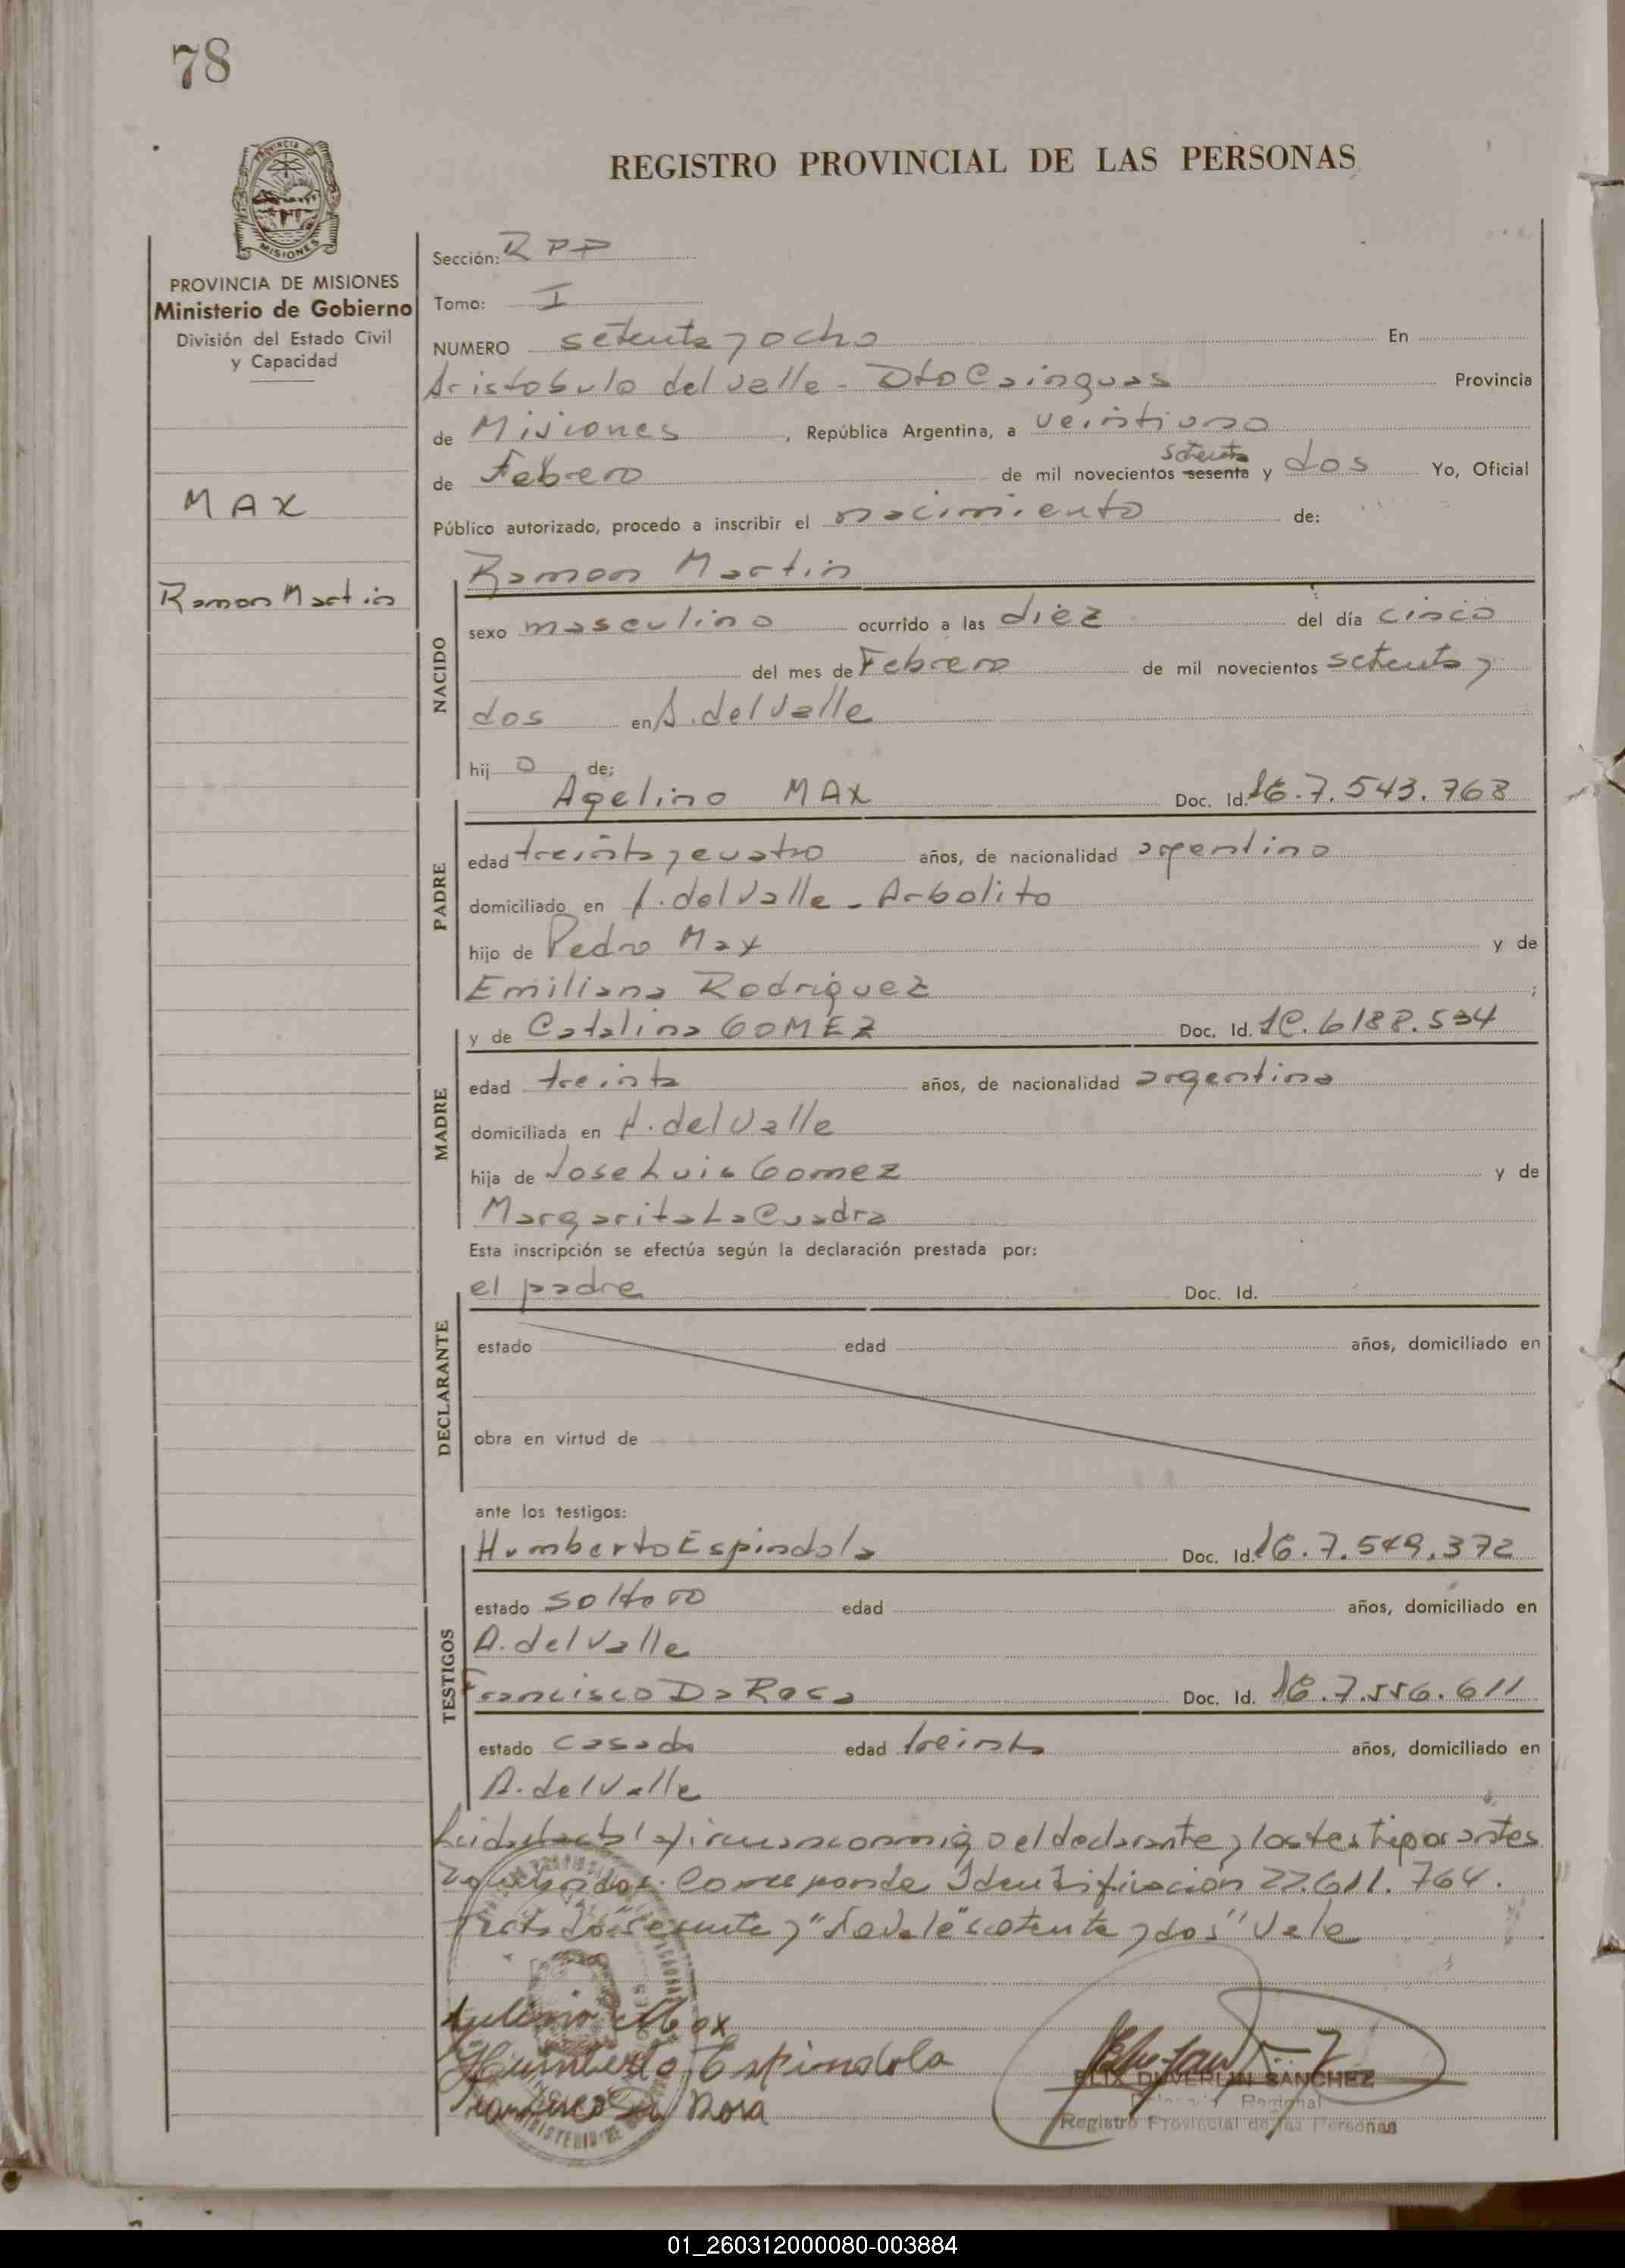 78
PROVINCIA DE
MISIONES
REGISTRO PROVINCIAL DE LAS PERSONAS
PROVINCIA DE MISIONES
Ministerio de Gobierno
División del Estado Civil
y Capacidad
MAX
Ramon Martin
Sección: RPP
Tomo: I
NUMERO setenta y ocho En
Aristobulo del Valle - Dto Cainguas Provincia
de Misiones, República Argentina, a veintiuno
setenta
de Febrero de mil novecientos sesenta y dos Yo, Oficial
Público autorizado, procedo a inscribir el nacimiento de:
Ramon Martin
NACIDO
sexo masculino ocurrido a las diez del día cinco
del mes de Febrero de mil novecientos setenta y
dos en A. del Valle
hij o de;
Agelino MAX Doc. Id. 7.543.768
PADRE
edad treinta y cuatro años, de nacionalidad argentino
domiciliado en A. del Valle - Arbolito
hijo de Pedro Max y de
Emiliana Rodriguez ;
y de Catalina GOMEZ Doc. Id.
MADRE
edad treinta años, de nacionalidad argentina
domiciliada en A. del Valle
hija de Jose Luis Gomez y de
Margarita La Cuadra
Esta inscripción se efectúa según la declaración prestada por:
el padre Doc. Id.
DECLARANTE
estado edad años, domiciliado en
obra en virtud de
ante los testigos:
Humberto Espindola Doc. Id. 7.549.372
TESTIGOS
estado soltero edad años, domiciliado en
A. del Valle
Francisco Da Rosa Doc. Id. 7.556.611
estado casado edad treinta años, domiciliado en
A. del Valle
Leida el acta la firman conmigo el declarante y los testigos antes
Corresponde Identificación 22.611.764.
Testado "sesenta y" "setenta y dos" Vale
Agelino Max
Humberto Espindola
Francisco Da Rosa
FELIX DUVERLIN SANCHEZ
Regional
Registro Provincial de las Personas
01_260312000080-003884